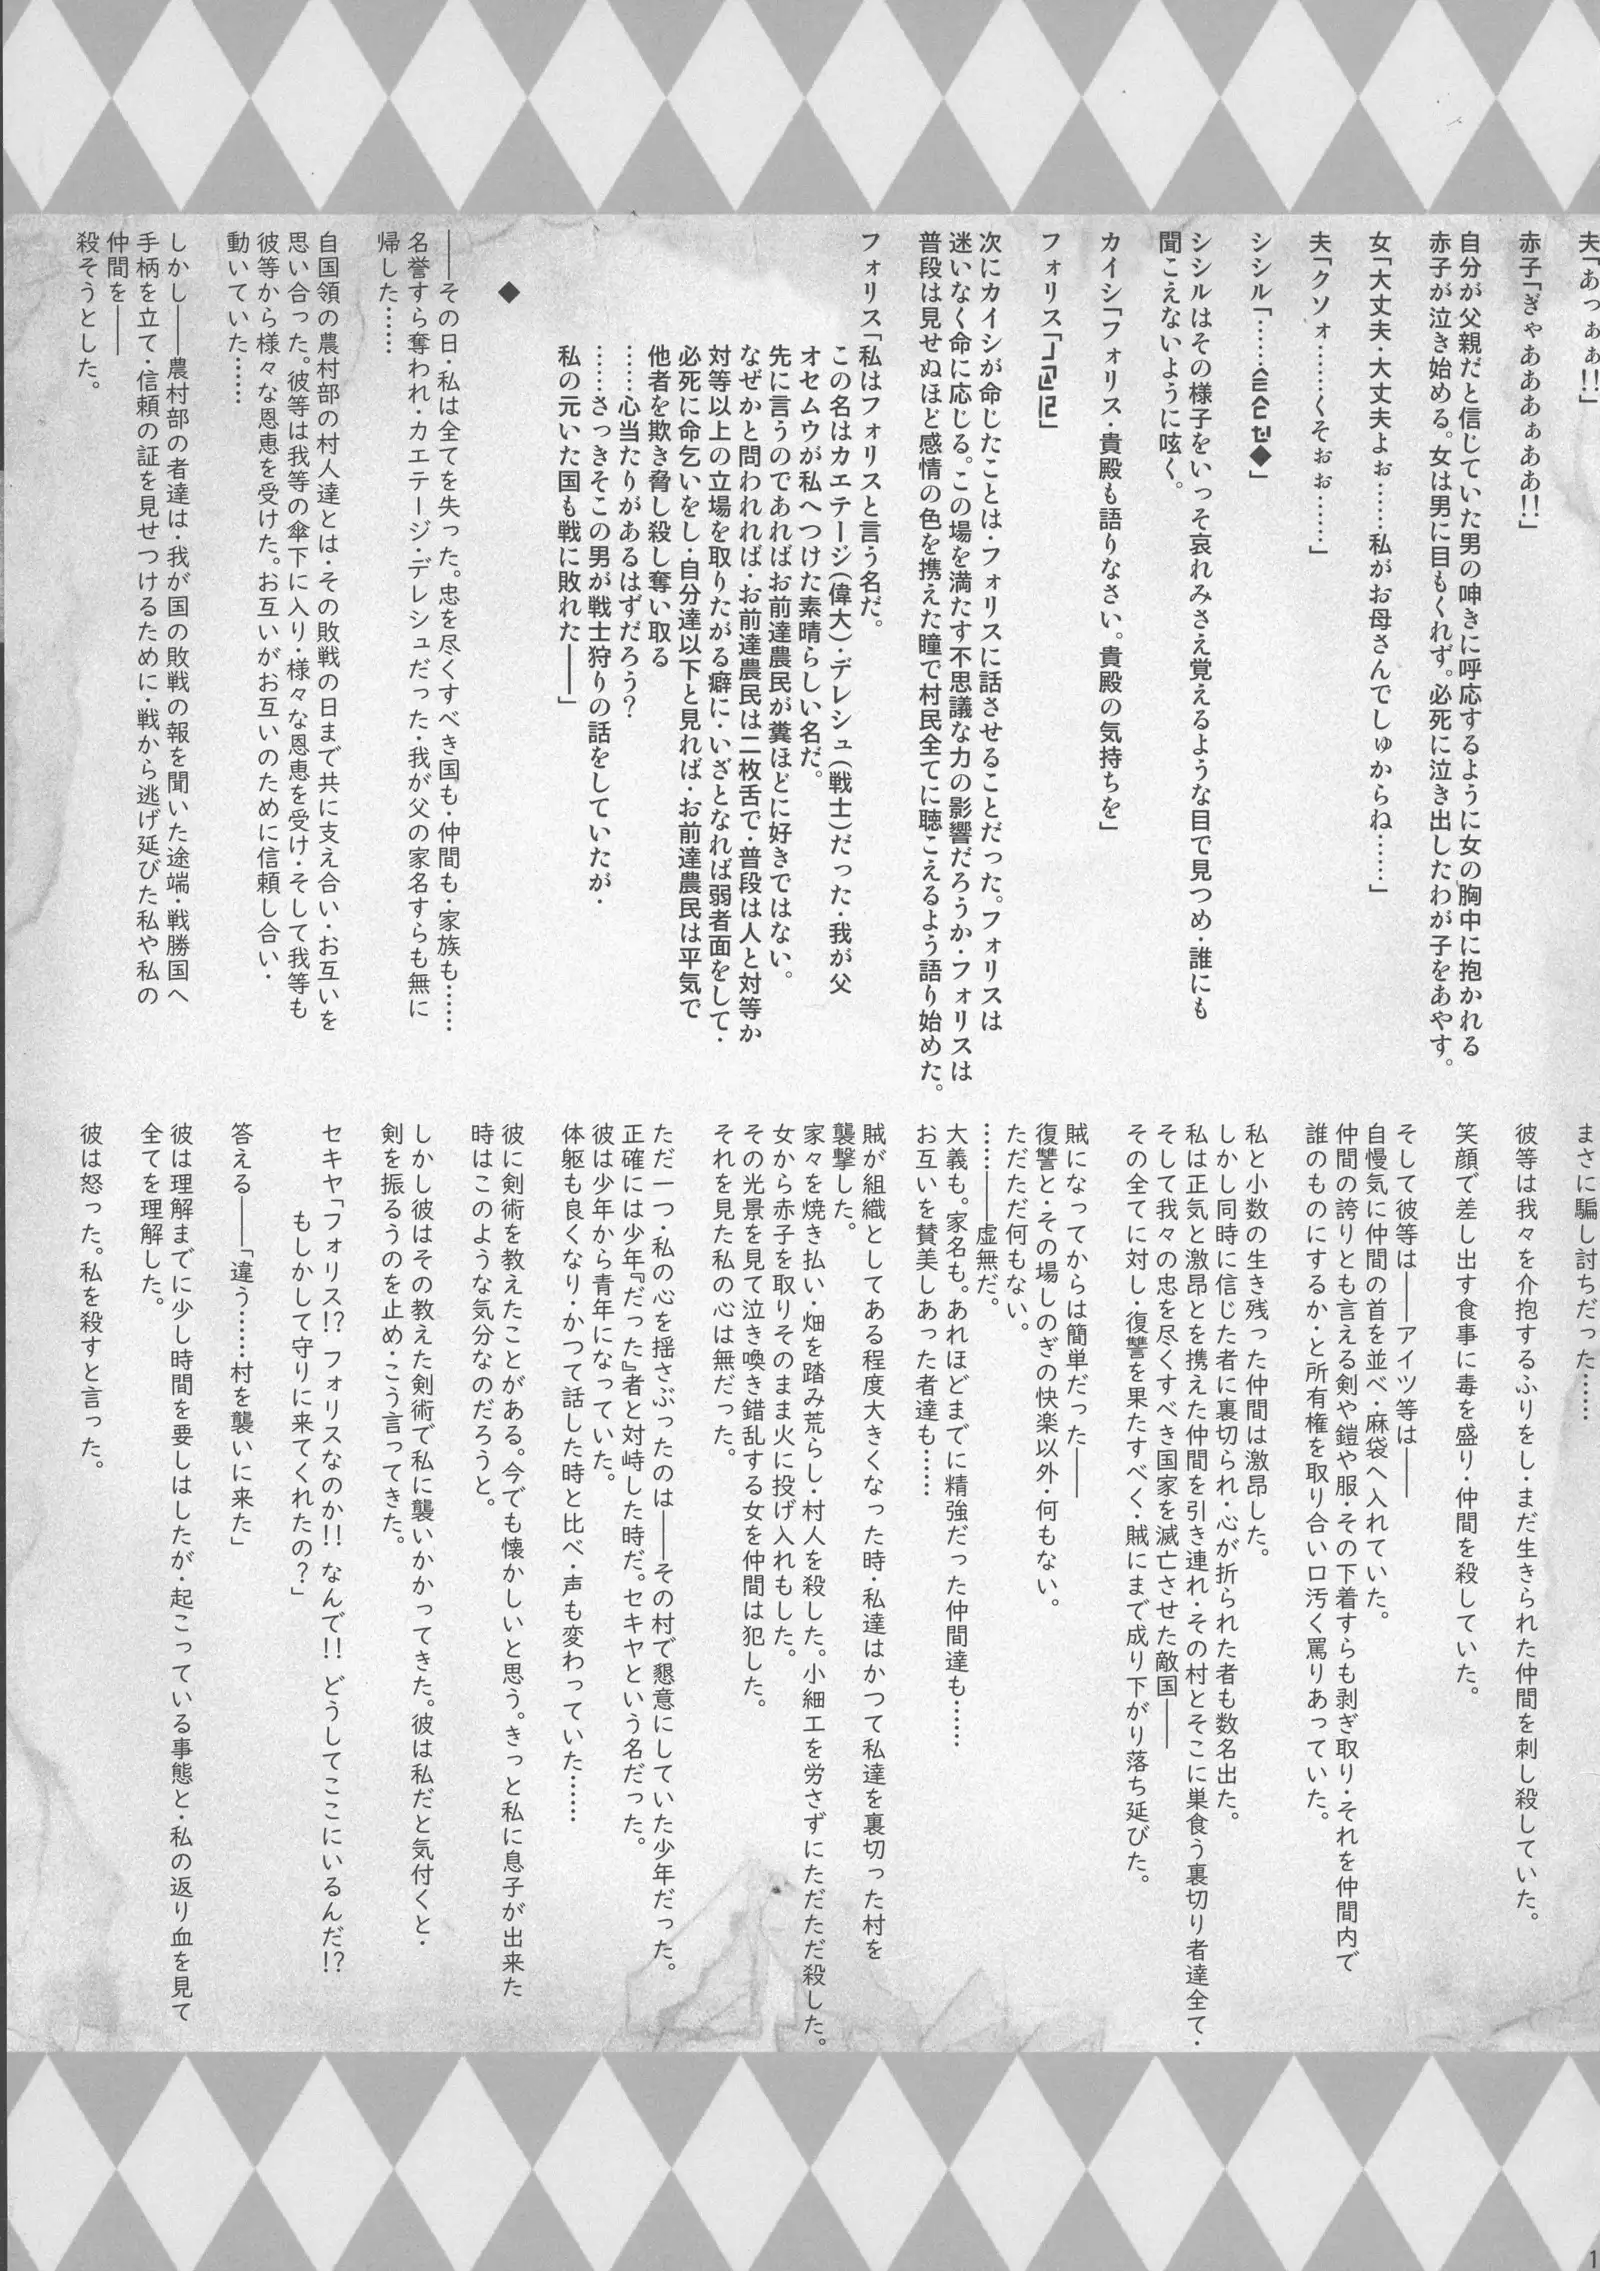 夫「あっぁぁ!!」
赤子「ぎゃあああぁああ!!」
自分が父親だと信じていた男の呻きに呼応するように女の胸中に抱かれる
赤子が泣き始める。女は男に目もくれず。必死に泣き出したわが子をあやす。
女「大丈夫・大丈夫よぉ……私がお母さんでしゅからね……」
夫「クソォ……くそぉぉ……」
シシル「……◆」
シシルはその様子をいっそ哀れみさえ覚えるような目で見つめ・誰にも
聞こえないように呟く。
カイシ「フォリス・貴殿も語りなさい。貴殿の気持ちを」
フォリス「」
次にカイシが命じたことは・フォリスに話させることだった。フォリスは
迷いなく命に応じる。この場を満たす不思議な力の影響だろうか・フォリスは
普段は見せぬほど感情の色を携えた瞳で村民全てに聴こえるよう語り始めた。
フォリス「私はフォリスと言う名だ。
この名はカエテージ(偉大)・デレシュ(戦士)だった・我が父
オセムウが私へつけた素晴らしい名だ。
先に言うのであればお前達農民が糞ほどに好きではない。
なぜかと問われれば・お前達農民は二枚舌で・普段は人と対等か
対等以上の立場を取りたがる癖に・いざとなれば弱者面をして・
必死に命乞いをし・自分達以下と見れば・お前達農民は平気で
他者を欺き脅し殺し奪い取る
……心当たりがあるはずだろう?
……さっきそこの男が戦士狩りの話をしていたが・
私の元いた国も戦に敗れた――」
◆
――その日・私は全てを失った。忠を尽くすべき国も・仲間も・家族も……
名誉すら奪われ・カエテージ・デレシュだった・我が父の家名すらも無に
帰した……
自国領の農村部の村人達とは・その敗戦の日まで共に支え合い・お互いを
思い合った。彼等は我等の傘下に入り・様々な恩恵を受け・そして我等も
彼等から様々な恩恵を受けた。お互いがお互いのために信頼し合い・
動いていた……
しかし――農村部の者達は・我が国の敗戦の報を聞いた途端・戦勝国へ
手柄を立て・信頼の証を見せつけるために・戦から逃げ延びた私や私の
仲間を――
殺そうとした。
まさに騙し討ちだった……
彼等は我々を介抱するふりをし・まだ生きられた仲間を刺し殺していた。
笑顔で差し出す食事に毒を盛り・仲間を殺していた。
そして彼等は――アイツ等は――
自慢気に仲間の首を並べ・麻袋へ入れていた。
仲間の誇りとも言える剣や鎧や服・その下着すらも剥ぎ取り・それを仲間内で
誰のものにするか・と所有権を取り合い口汚く罵りあっていた。
私と小数の生き残った仲間は激昂した。
しかし同時に信じた者に裏切られ・心が折られた者も数名出た。
私は正気と激昂とを携えた仲間を引き連れ・その村とそこに巣食う裏切り者達全て・
そして我々の忠を尽くすべき国家を滅亡させた敵国――
その全てに対し・復讐を果たすべく・賊にまで成り下がり落ち延びた。
賊になってからは簡単だった――
復讐と・その場しのぎの快楽以外・何もない。
ただただ何もない。
……――虚無だ。
大義も。家名も。あれほどまでに精強だった仲間達も……
お互いを賛美しあった者達も……
賊が組織としてある程度大きくなった時・私達はかつて私達を裏切った村を
襲撃した。
家々を焼き払い・畑を踏み荒らし・村人を殺した。小細工を労さずにただただ殺した。
女から赤子を取りそのまま火に投げ入れもした。
その光景を見て泣き喚き錯乱する女を仲間は犯した。
それを見た私の心は無だった。
ただ一つ・私の心を揺さぶったのは――その村で懇意にしていた少年だった。
正確には少年『だった』者と対峙した時だ。セキヤという名だった。
彼は少年から青年になっていた。
体躯も良くなり・かつて話した時と比べ・声も変わっていた……
彼に剣術を教えたことがある。今でも懐かしいと思う。きっと私に息子が出来た
時はこのような気分なのだろうと。
しかし彼はその教えた剣術で私に襲いかかってきた。彼は私だと気付くと・
剣を振るうのを止め・こう言ってきた。
セキヤ「フォリス!? フォリスなのか!! なんで!! どうしてここにいるんだ!?
もしかして守りに来てくれたの?」
答える――「違う……村を襲いに来た」
彼は理解までに少し時間を要しはしたが・起こっている事態と・私の返り血を見て
全てを理解した。
彼は怒った。私を殺すと言った。
1